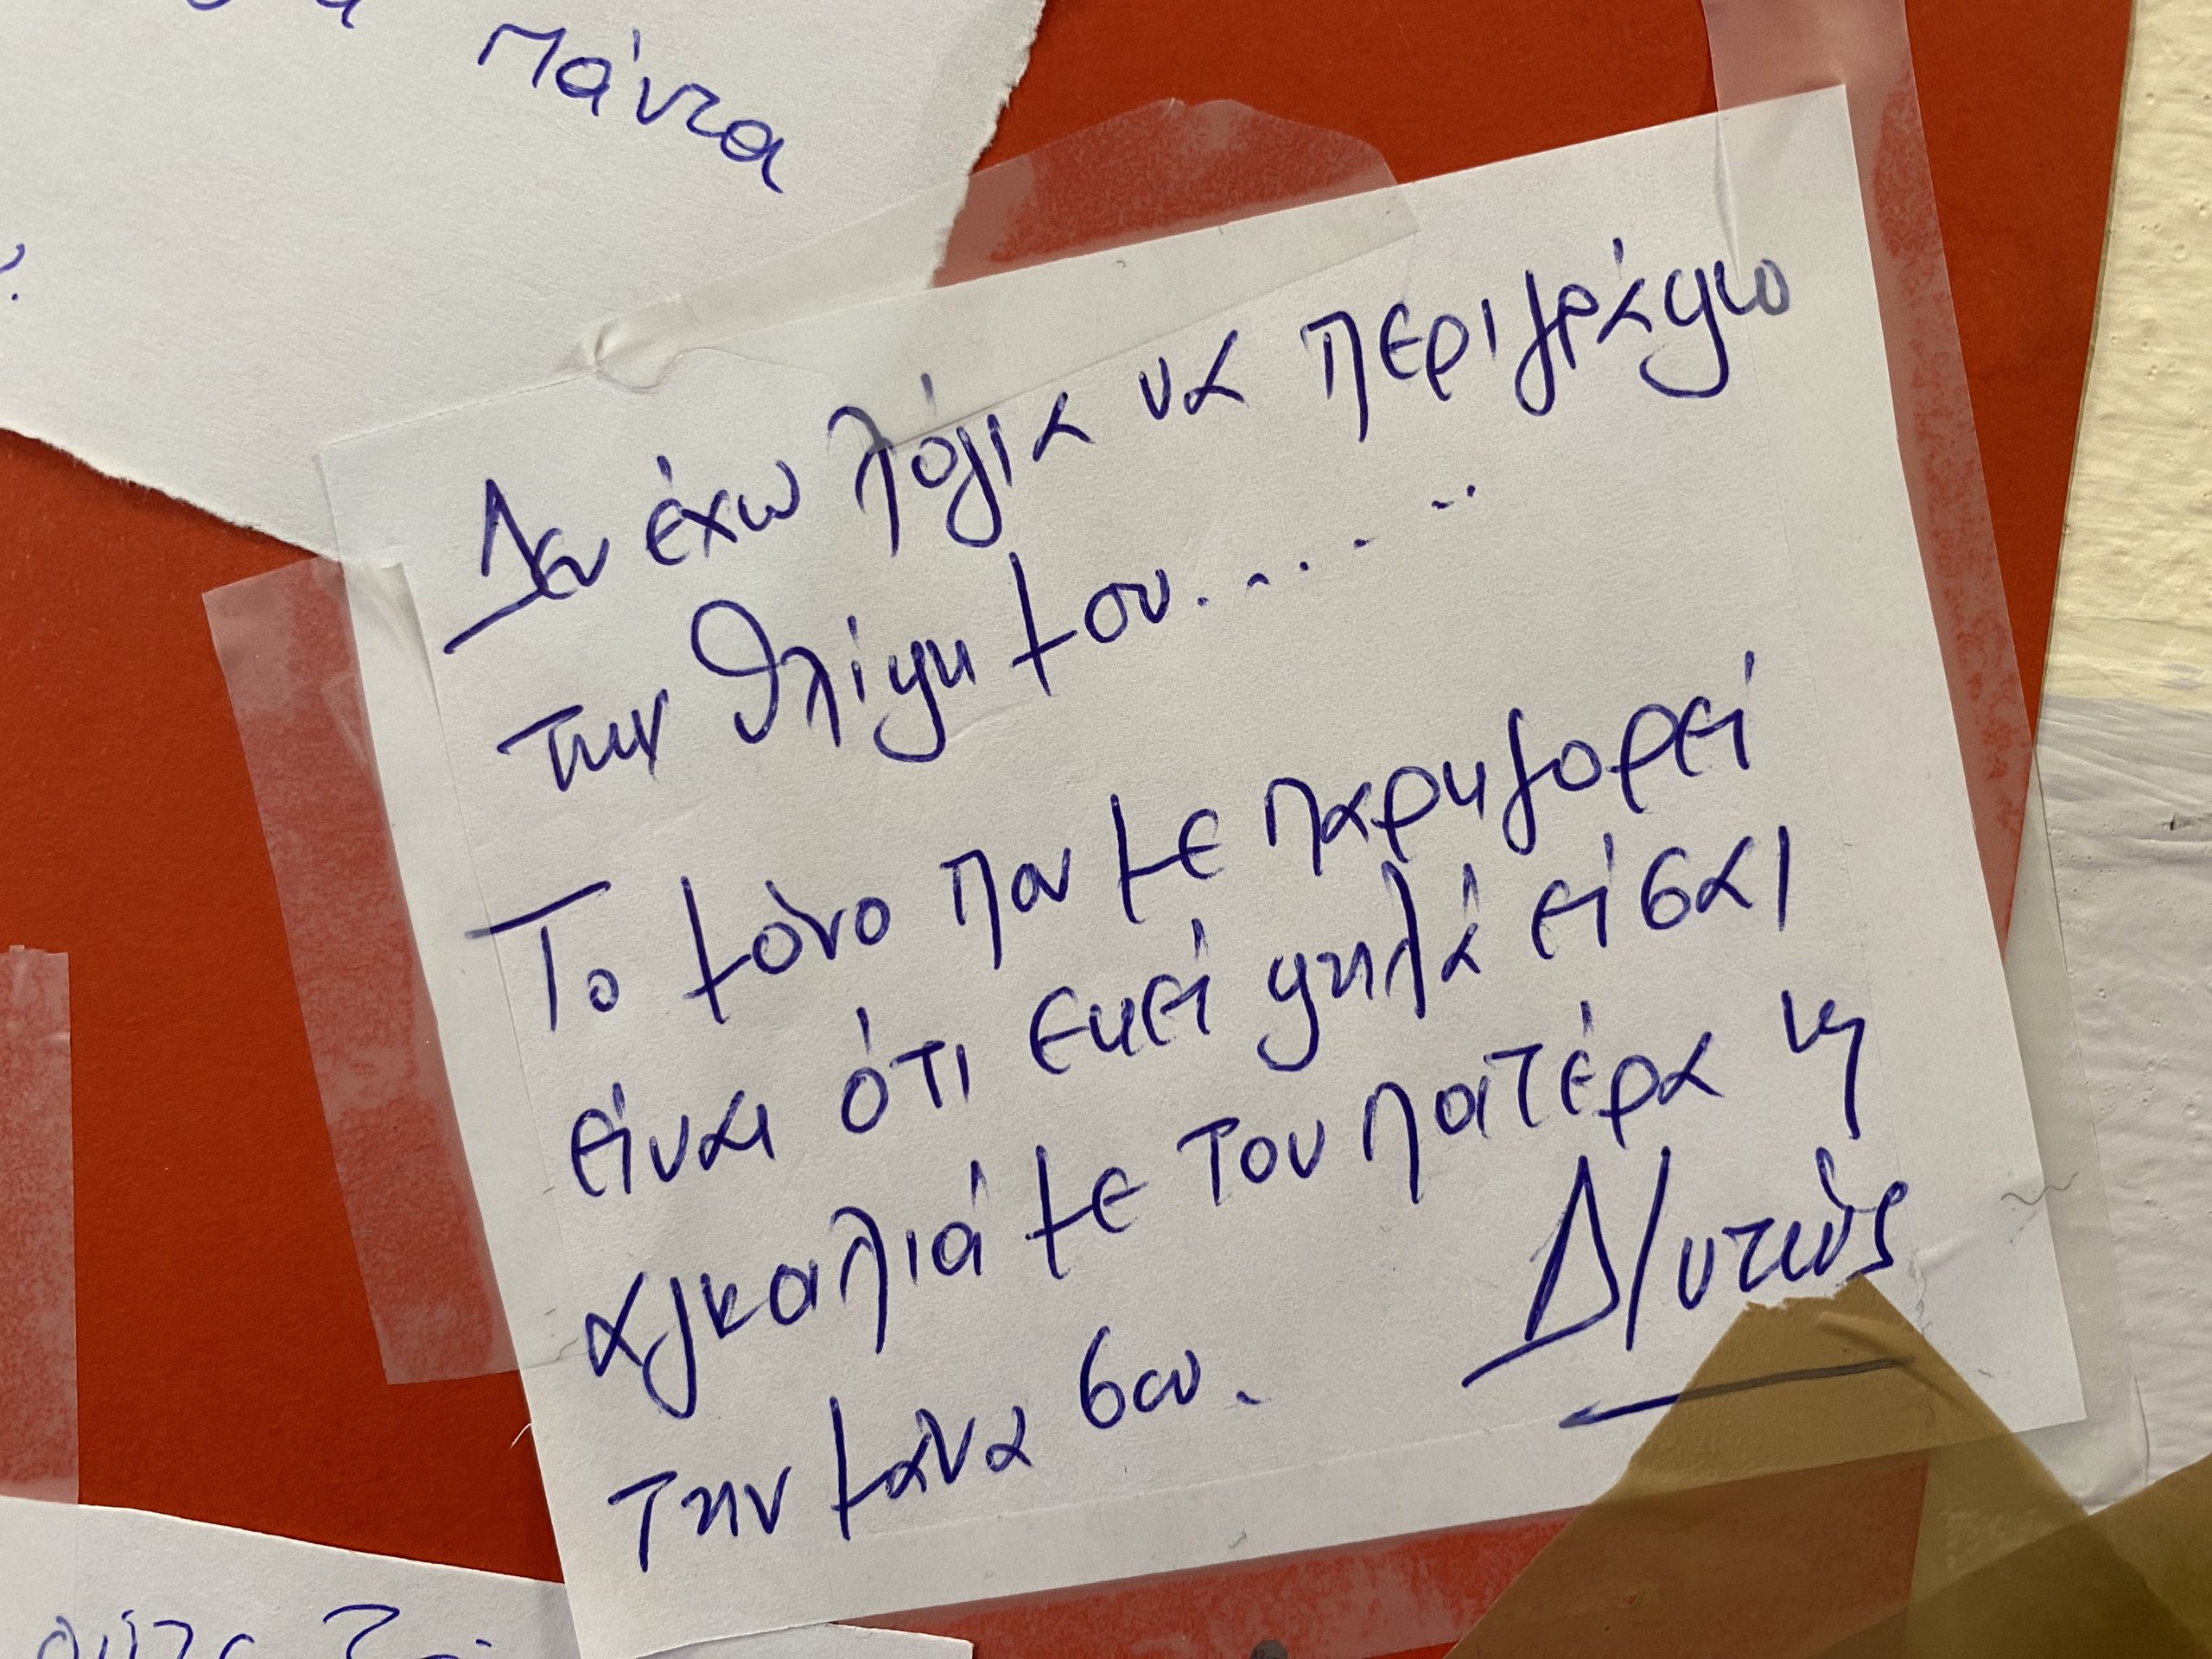 πάντα
Δεν έχω λόγια να περιγράψω
την θλίψη μου........
Το μόνο που με παρηγορεί
είναι ότι εκεί ψηλά είσαι
αγκαλιά με τον πατέρα κ
την μάνα σου.
Δ/ντής